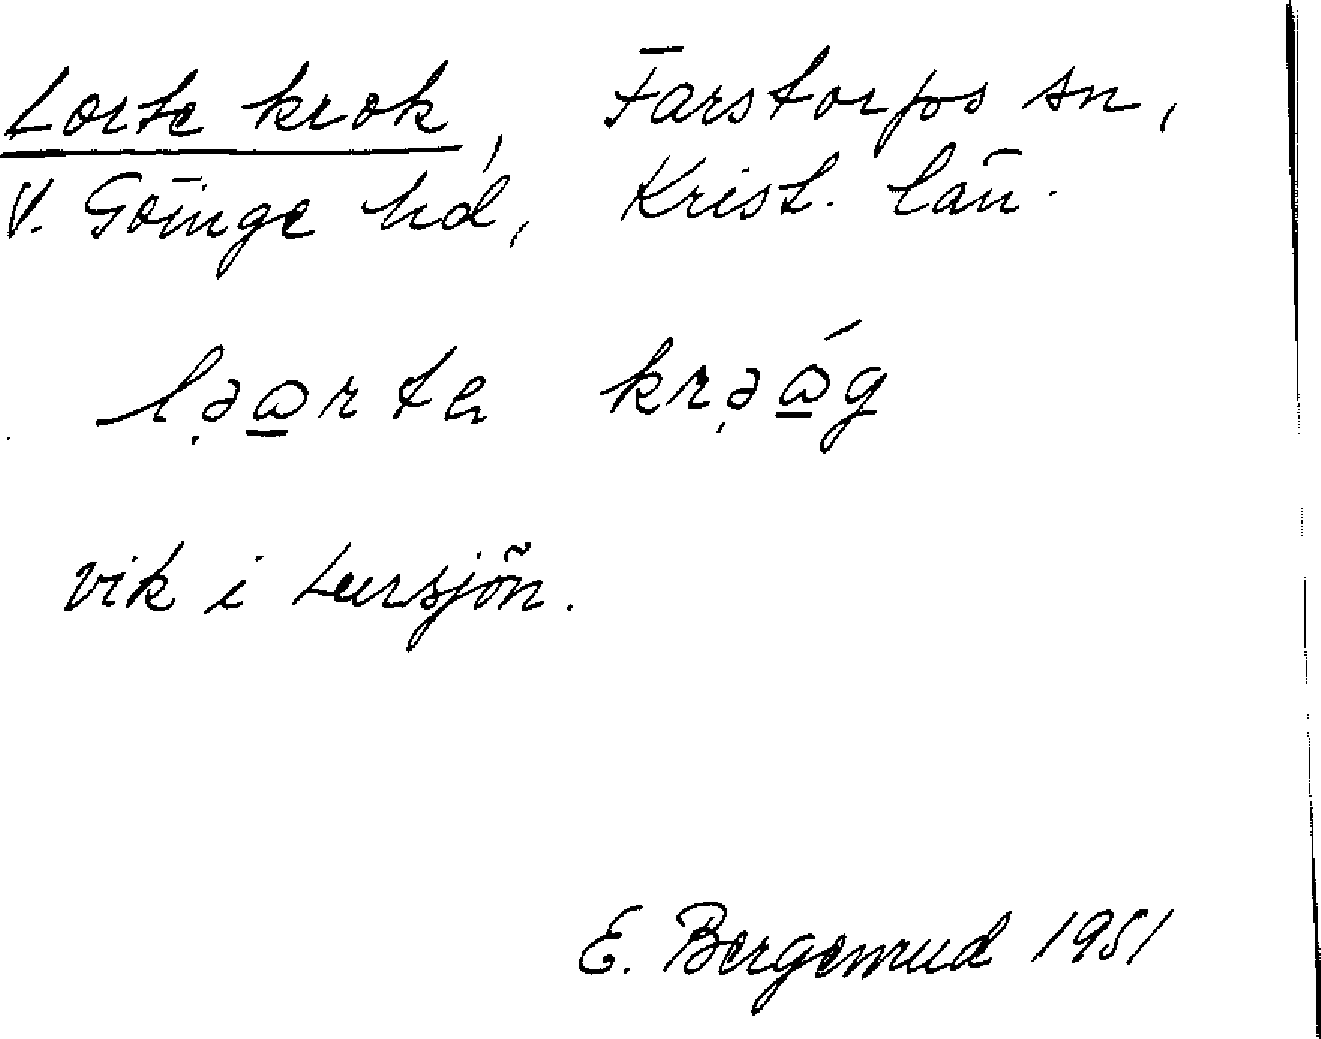 Lorte krok, Farstorps sn,
V. Göinge hd, Krist. län.
lə̣ɷ̲rtɐ krə̣ɷ̲́g
vik i Lursjön.
E. Bergemrud 1951